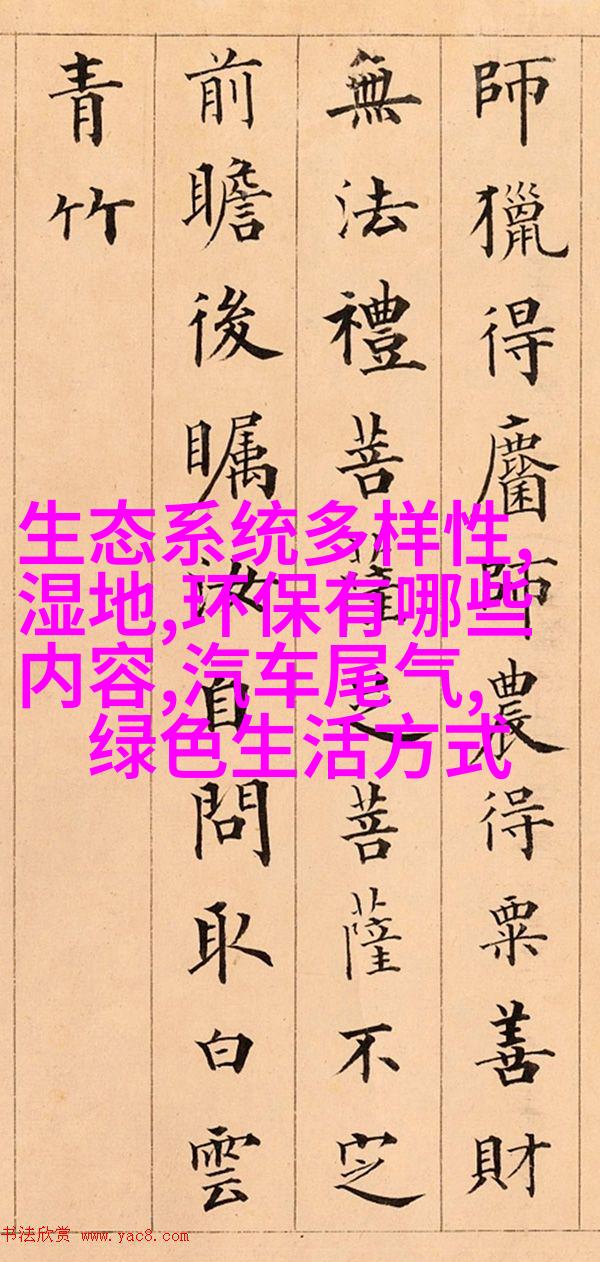 師獵得麕師農得粟善財
無法禮菩薩菩薩不㝎
前瞻後矚汝自問取白雲
青竹
生态系统多样性,
湿地,环保有哪些
内容,汽车尾气,
绿色生活方式
书法欣赏 www.yac8.com